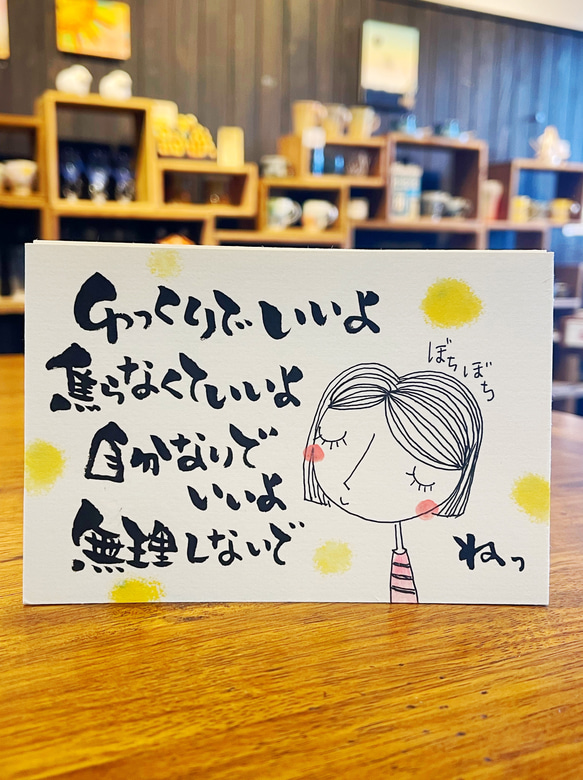 ゆっくりでいいよ
焦らなくていいよ
自分なりで
いいよ
無理しないで
ねっ
ぼちぼち